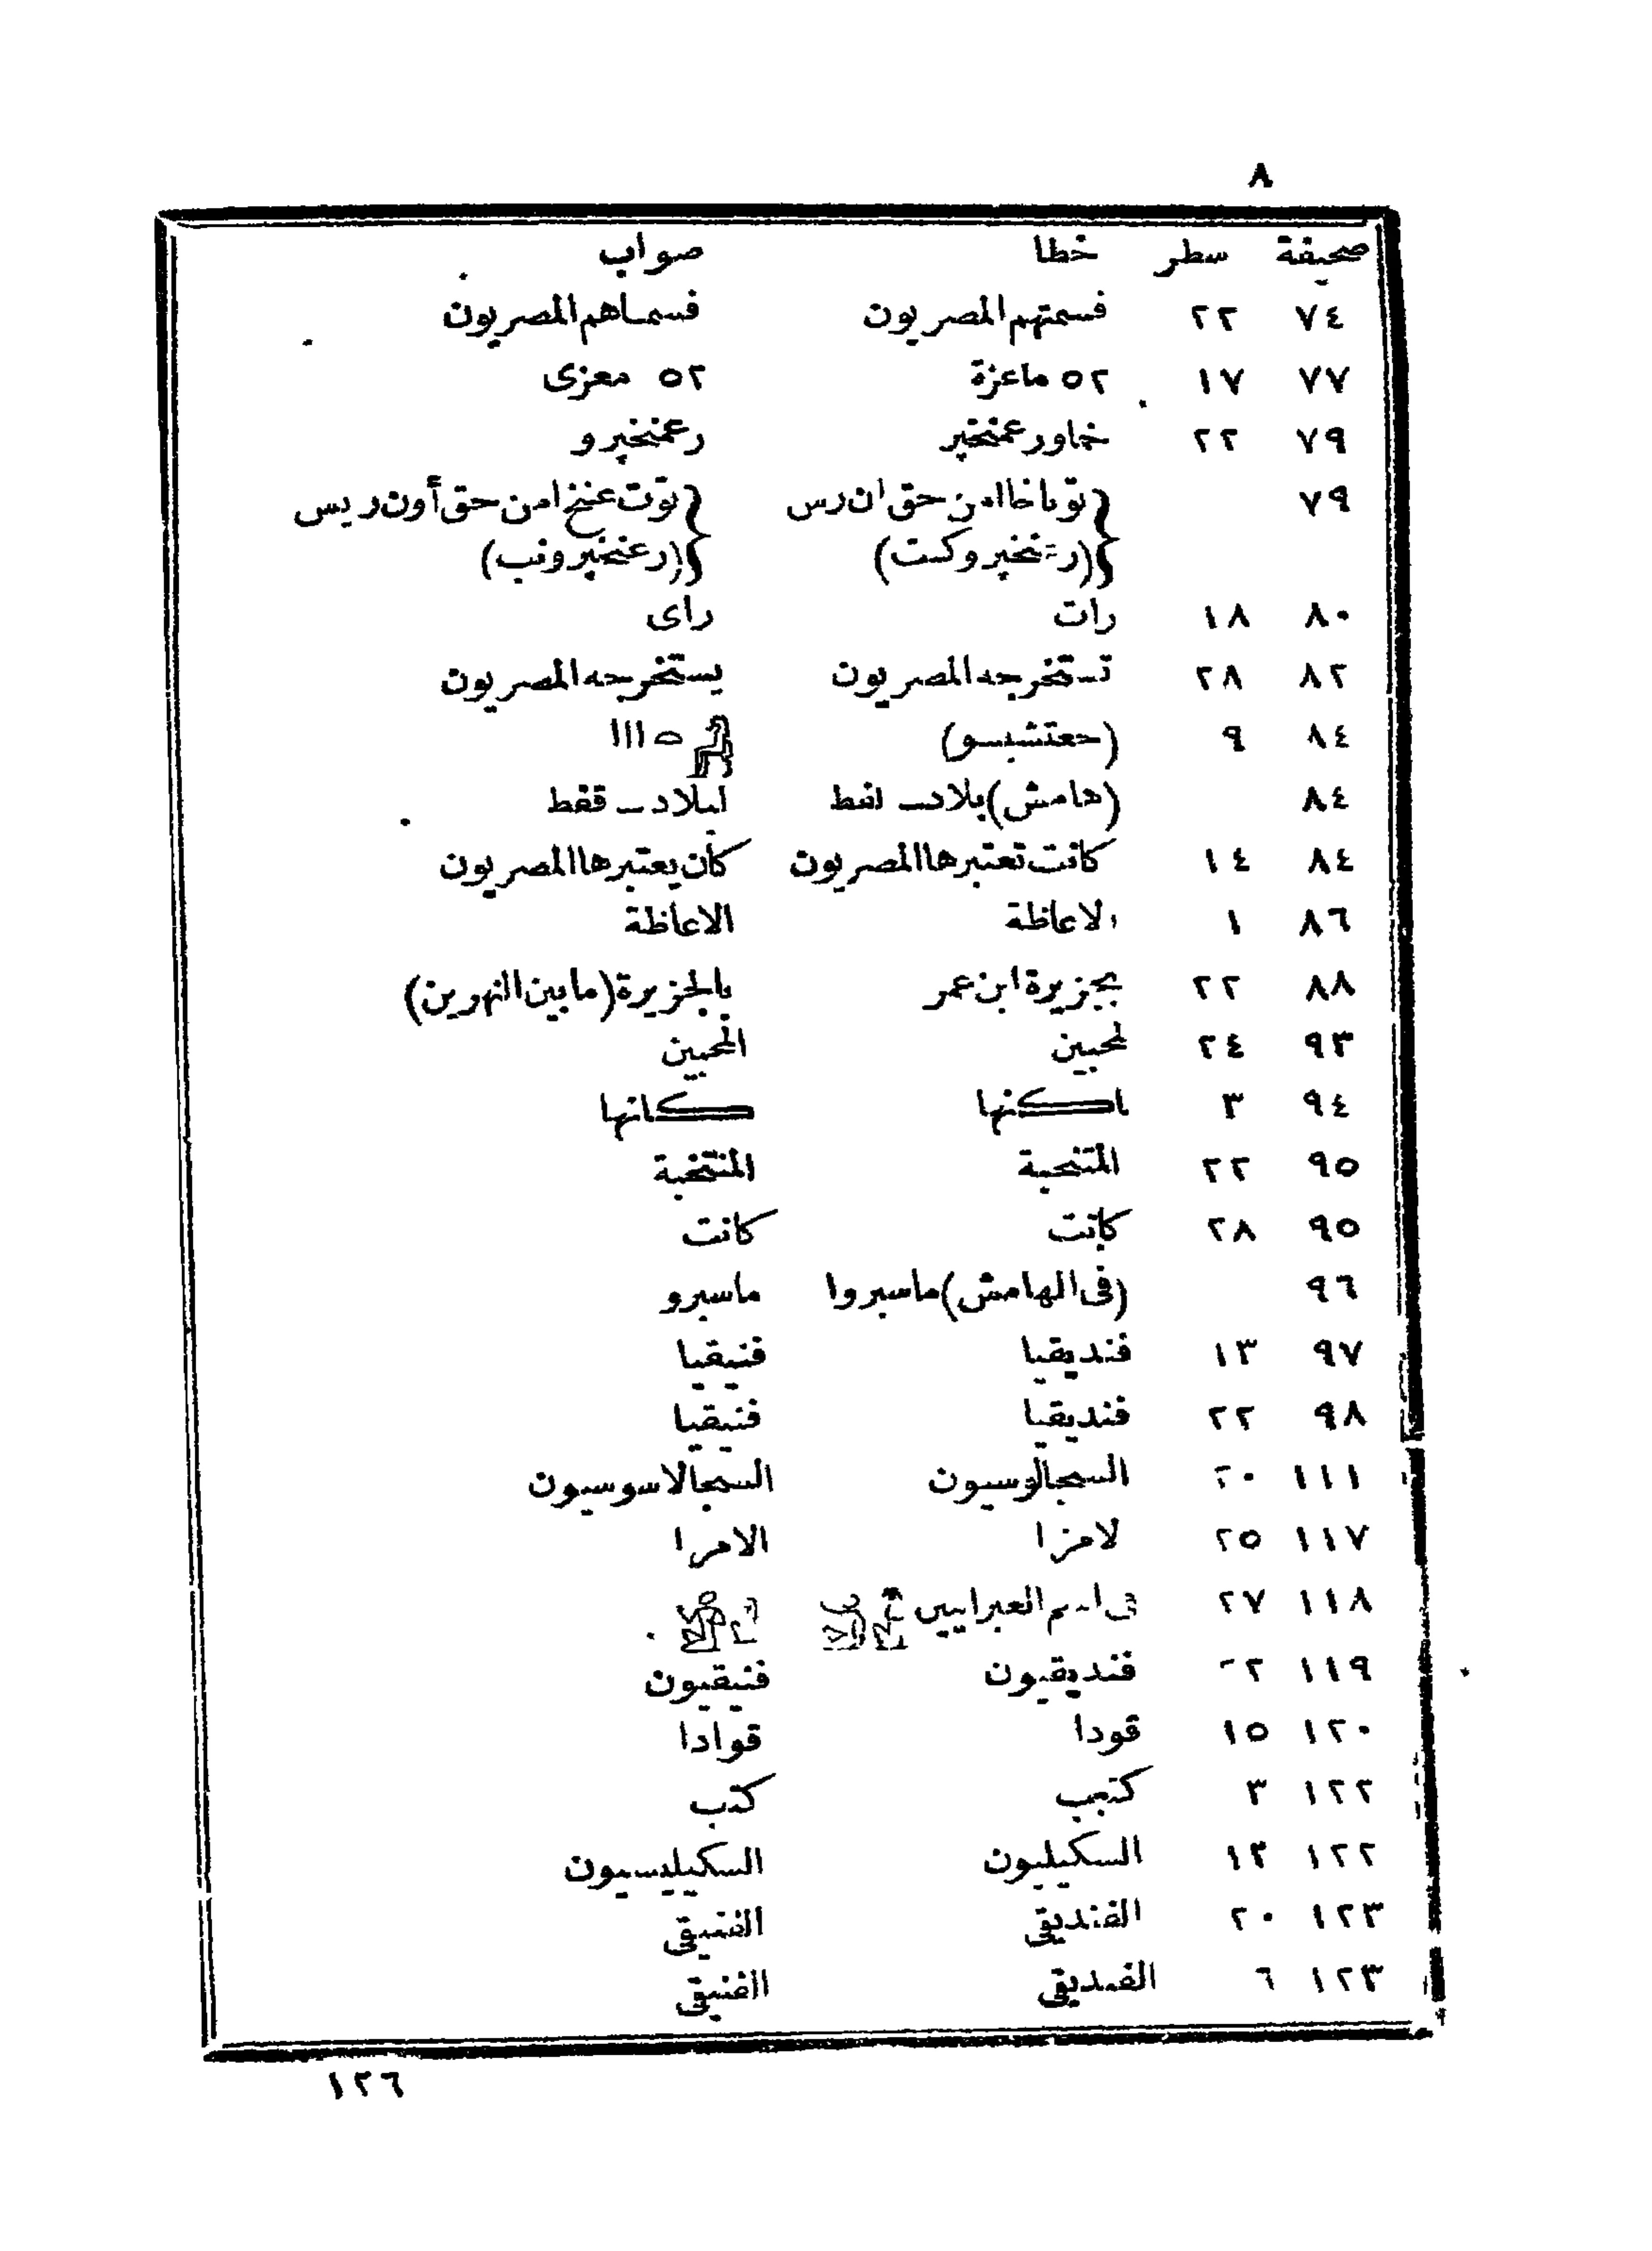 ٨
صحيفة سطر خطا صواب
٧٤ ٢٢ فسمتهم المصريون فسماهم المصريون
٧٧ ١٧ ٥٢ ماعزة ٥٢ معزى
٧٩ ٢٢ خماورعمنخپر رعمنخپرو
٧٩ توباخاامن حق ان رس توت عنخ امن حق أون ريس
(ر نخپروكست) (رعنخپرونب)
٨٠ ١٨ رات راى
٨٢ ٢٨ تستخرجه المصريون يستخرجه المصريون
٨٤ ٩ (حعتشبسو)
٨٤ (هامش) بلاد انفط لبلاد قفط
٨٤ ١٤ كانت تعتبرها المصريون كان يعتبرها المصريون
٨٦ ١ لاعاظة الاعاظة
٨٨ ٢٢ بجزيرة ابن عمر بالجزيرة (مابين النهرين)
٩٣ ٢٤ لمحبين المحبين
٩٤ ٣ اكنها كانها
٩٥ ٢٢ المتنحبة المنتخبة
٩٥ ٢٨ كانت
٩٦ (فى الهامش) ماسبروا ماسبرو
٩٧ ١٣ فنديقيا فنيقيا
٩٨ ٢٢ فنديقيا فنيقيا
١١١ ٢٠ السجالوسيون السجالاسوسيون
١١٧ ٢٥ لامزا الامرا
١١٨ ٢٧ العبرانيين
١١٩ ٢ فنديقيون فنيقيون
١٢٠ ١٥ قودا قوادا
١٢٢ ٣ كتبب كتب
١٢٢ ١٣ السكيليون السكيليسيون
١٢٣ ٢٠ الفنديقى الفنيقى
١٢٣ ٦ الفنديقى الفنيقى
١٢٦